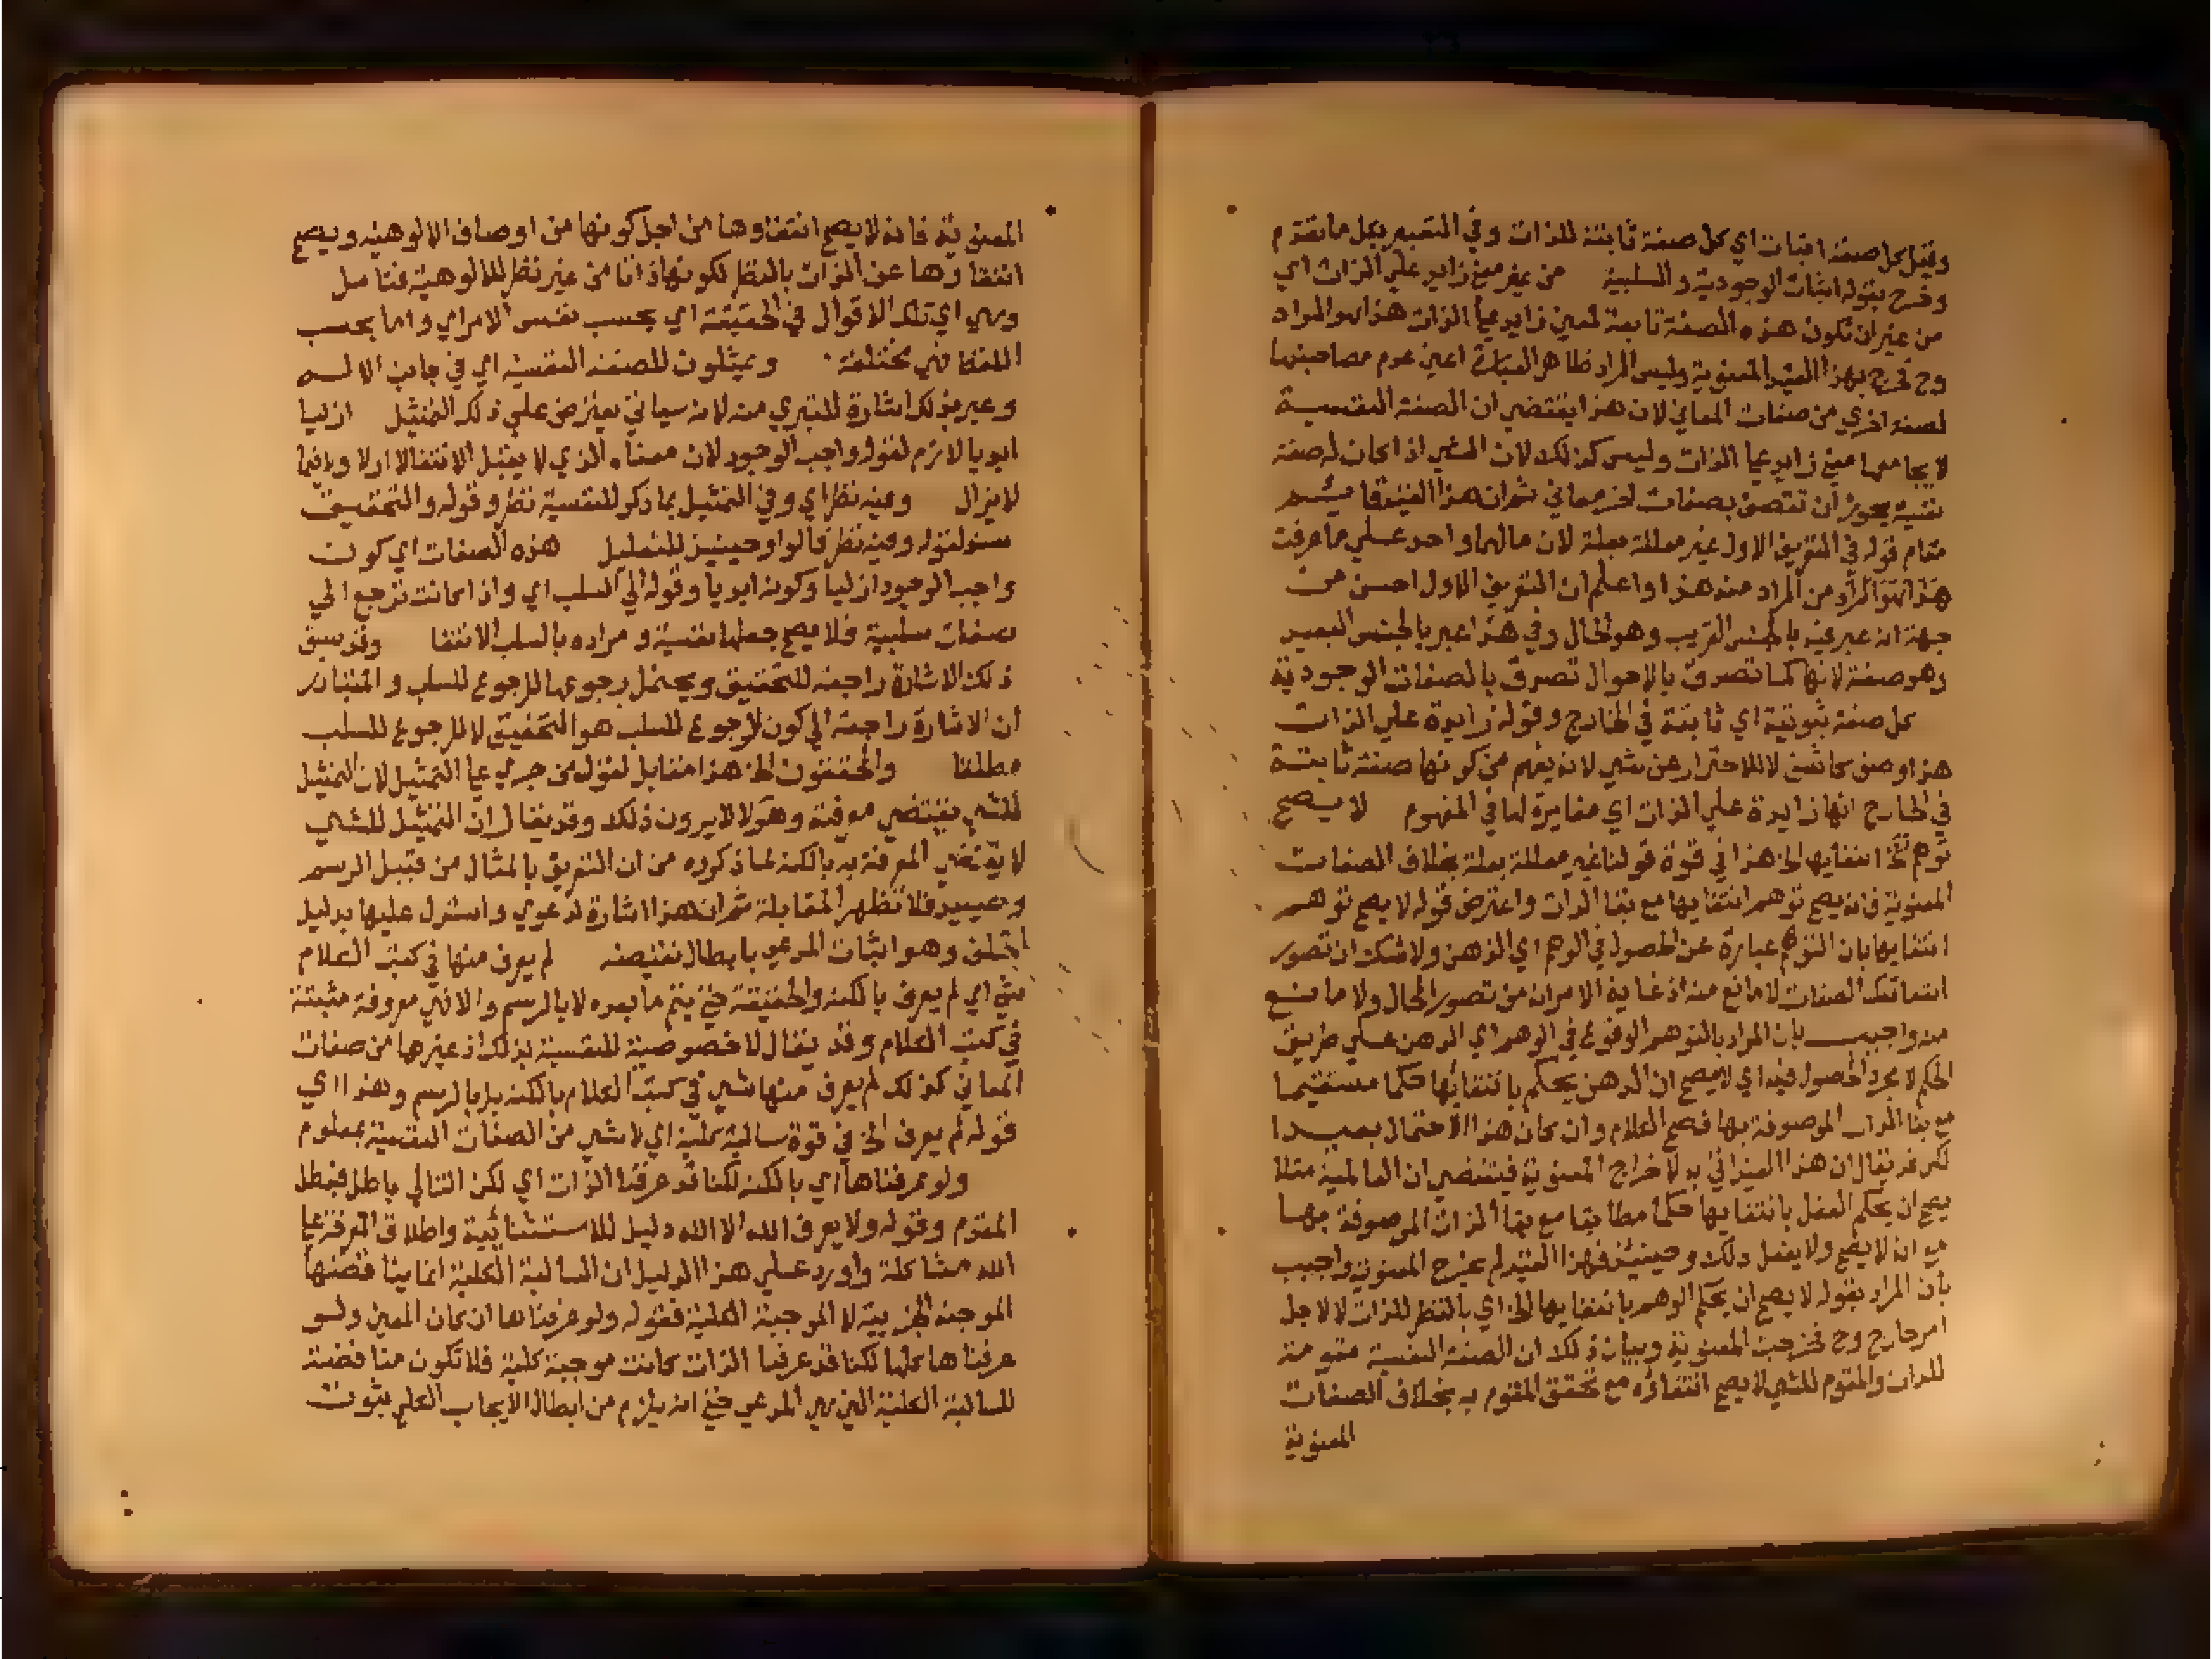 وقيل كل صفة اثبات اي كل صفة ثابتة للذات وفي التعبير بكل ما تقدم
وخرج بقوله اثبات الوجودية والسلبية من غير معني زايد علي الذات اي
من غير ان تكون هذه الصفة تابعة لمعني زايد علي الذات هذا هو المراد
وح خرج بهذا القيد المعنوية وليس المراد ظاهر العبارة اعني عدم مصاحبتها
لصفة اخري من صفات المعاني لان هذا يقتضي ان الصفة النفسية
لا يجامعها معني زايد علي الذات وليس كذلك لان الشي اذا كان له صفة
نفسية يجوز ان تتصف بصفات اخر معاني ثم ان هذا القيد قايم
مقام قوله في التعريف الاول غير معللة بعلة لان مالهما واحد علي ما عرفت
من المراد منه هذا واعلم ان التعريف الاول احسن من
جهة انه عبر فيه بالجنس القريب وهو الحال وفي هذا عبر بالجنس البعيد
وهو صفة لانها كما تصدق بالاحوال تصدق بالصفات الوجودية
كل صفة ثبوتية اي ثابتة في الخارج وقوله زايدة علي الذات
هذا وصف كاشف لا للاحتراز عن شي لانه يفهم من كونها صفة ثابتة
في الخارج انها زايدة علي الذات اي مغايرة لها في المفهوم لا يصح
توهم انتفايها الخ هذا في قوة قولنا غير معللة بعلة بخلاف الصفات
المعنوية فانه يصح توهم انتفايها مع بقا الذات واعترض قوله لا يصح توهم
انتفايها بان التوهم عبارة عن الحصول في الوهم اي الذهن ولا شك ان تصور
انتفا تلك الصفات لا مانع منه اذ غاية الامر انه من تصور المحال ولا مانع
منه واجيب بان المراد بالتوهم الوقوع في الوهم اي الذهن علي طريق
الحكم لا مجرد الحصول فيه اي لا يصح ان الذهن يحكم بانتفايها حكما مستقيما
مع بقا الذات الموصوفة بها فصح الكلام وان كان هذا الاحتمال بعيدا
لكن قد يقال ان هذا القيد اتي به لاخراج المعنوية فيقتضي ان العالمية مثلا
يصح ان يحكم العقل بانتفايها حكما مطابقا مع بقا الذات الموصوفة بها
مع انه لا يصح ولا يعقل ذلك وحينيذ فهذا القيد لم يخرج المعنوية واجيب
بان المراد بقوله لا يصح ان يحكم الوهم بانتفايها الخ اي بالنظر للذات لا لاجل
امر خارج وح فخرجت المعنوية وبيان ذلك ان الصفة النفسية مقومة
للذات والمقوم للشي لا يصح انتفاؤه مع تحقق المقوم به بخلاف الصفات
المعنوية
المعنوية فانه لا يصح انتفاوها من اجل كونها من اوصاف الالوهية ويصح
انتفاوها عن الذات بالنظر لكونها ذاتا من غير نظر للالوهية فتامل
وهي اي تلك الاقوال في الحقيقة اي بحسب نفس الامر اي واما بحسب
اللفظ فهي مختلفة ويمثلون للصفة النفسية اي في جانب الاله
وعبر بذلك اشارة للتبري منه لانه سياتي يعترض علي ذلك التمثيل ازليا
ابديا لازم لقوله واجب الوجود لان معناه الذي لا يقبل الانتفا لا ازلا ولا فيما
لا يزال وفيه نظر اي وفي التمثيل بما ذكر للنفسية نظر وقوله والتحقيق
سند لقوله وفيه نظر فالواو حينيذ للتعليل هذه الصفات اي كونه
واجب الوجود ازليا وكونه ابديا وقوله الي السلب اي واذا كانت ترجع الي
صفات سلبية فلا يصح جعلها نفسية ومراده بالسلب الانتفا وقد سبق
ذلك الاشارة راجعة للتحقيق ويحتمل رجوعها للرجوع للسلب والمتبادر
ان الاشارة راجعة الي كون الرجوع للسلب هو التحقيق لا للرجوع للسلب
مطلقا والمحققون الخ هذا مقابل لقوله من جري علي التمثيل لان التمثيل
للشي يقتضي معرفته وهولا لا يرون ذلك وقد يقال ان التمثيل للشي
لا يقتضي المعرفة به بالكنه لما ذكروه من ان التعريف بالمثال من قبيل الرسم
وحينيذ فلا تظهر المقابلة ثم ان هذا اشارة لدعوي واستدل عليها بدليل
الخلف وهو اثبات المدعي بابطال نقيضه لم يعرف منها في كتب الكلام
شي اي لم يعرف بالكنه والحقيقة حتي يتم ما بعده لا بالرسم والا فهي معروفة مثبتة
في كتب الكلام وقد يقال لا خصوصية للنفسية بذلك اذ غيرها من صفات
المعاني كذلك لم يعرف منها شي في كتب الكلام بالكنه بل بالرسم وهذا اي
قوله لم يعرف الخ في قوة سالبة كلية اي لا شي من الصفات النفسية بمعلوم
ولو عرفناها اي بالكنه لكنا قد عرفنا الذات اي لكن التالي باطل فبطل
المقدم وقوله ولا يعرف الله الا الله دليل للاستثنائية واطلاق المعرفة علي
الله مشاكلة واورد علي هذا الدليل ان السالبة الكلية انما يناقضها
الموجبة الجزيية لا الموجبة الكلية فقوله ولو عرفناها ان كان المعني ولو
عرفناها كلها لكنا قد عرفنا الذات كانت موجبة كلية فلا تكون مناقضة
للسالبة الكلية التي هي المدعي حتي انه يلزم من ابطال الايجاب الكلي ثبوت